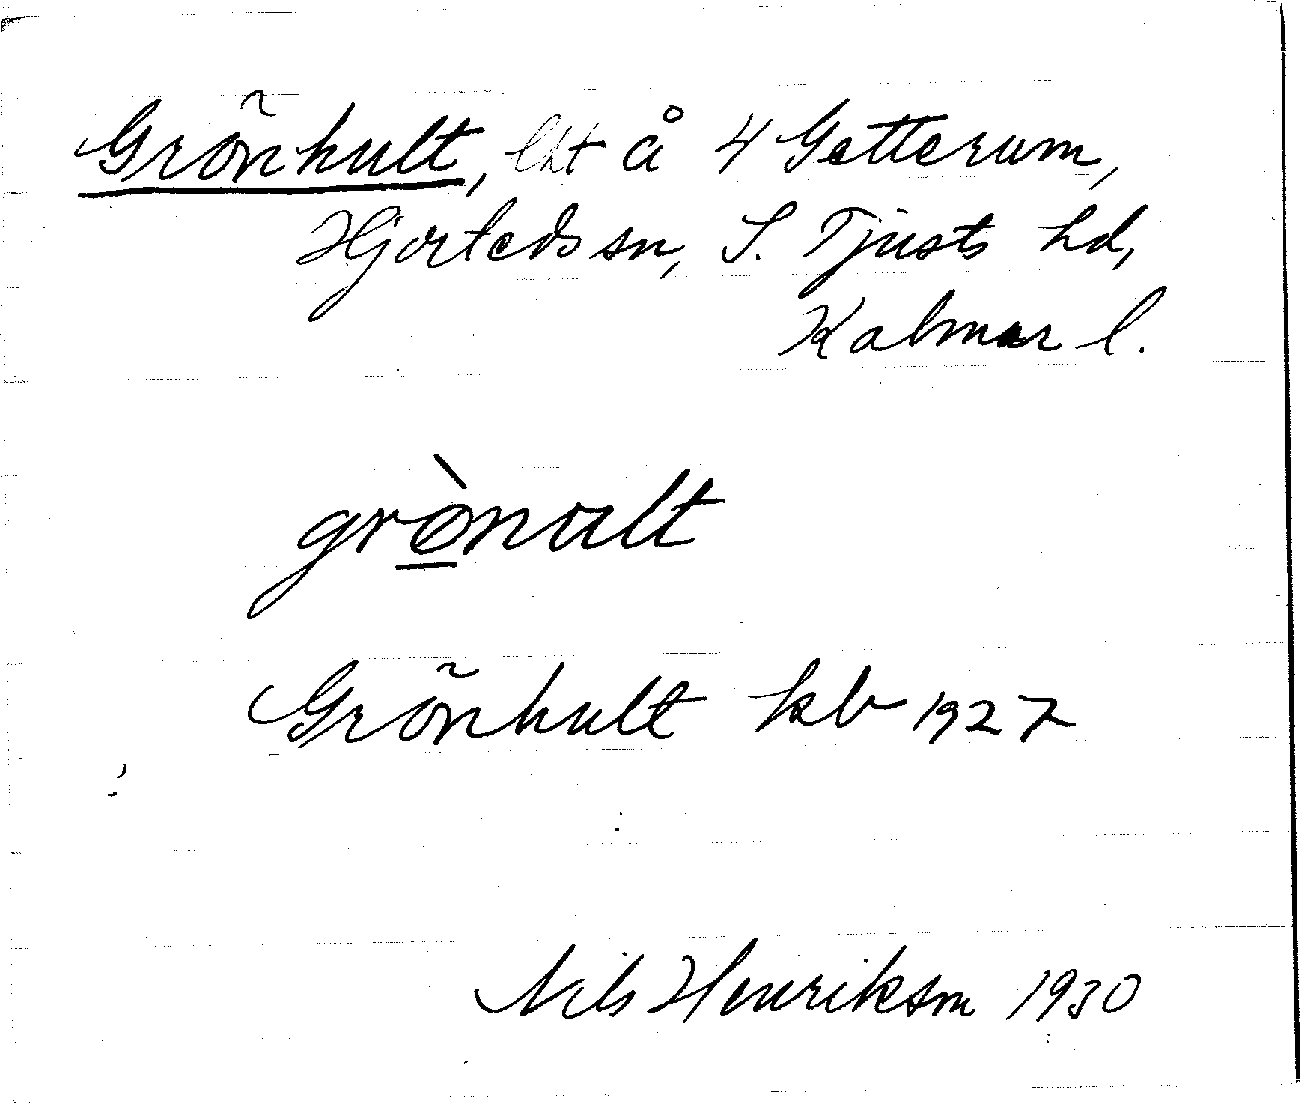 Grönhult, lht å 4 Getterum,
Hjorteds sn, S. Tjusts hd,
Kalmar l.
grò̲nɑlt
Grönhult kb 1927
Nils Henriksson 1930